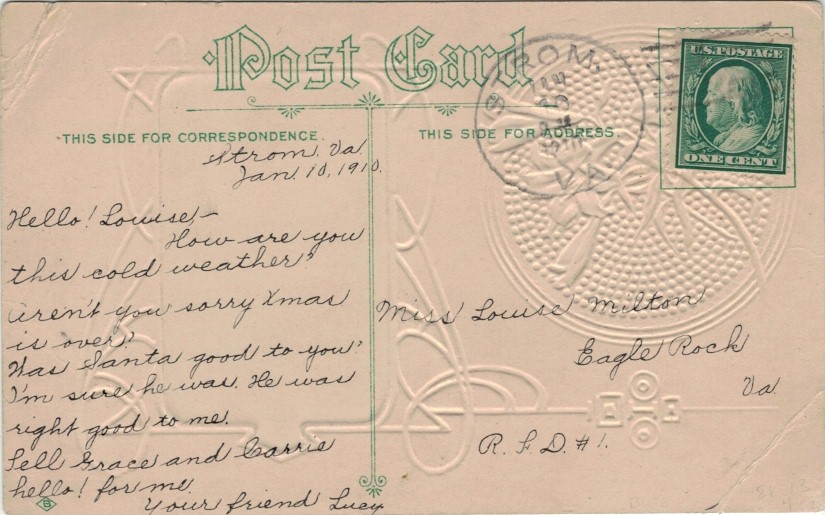 Post Card
THIS SIDE FOR CORRESPONDENCE.
THIS SIDE FOR ADDRESS.
STROM,
VA
U.S. POSTAGE
ONE CENT
Strom, Va
Jan. 10, 1910.
Hello! Louise,—
How are you
this cold weather?
Aren't you sorry Xmas
is over?
Was Santa good to you?
I'm sure he was. He was
right good to me.
Tell Grace and Carrie
hello! for me.
Your friend Lucy
Miss Louise Milton
Eagle Rock
Va.
R. F. D. # 1.